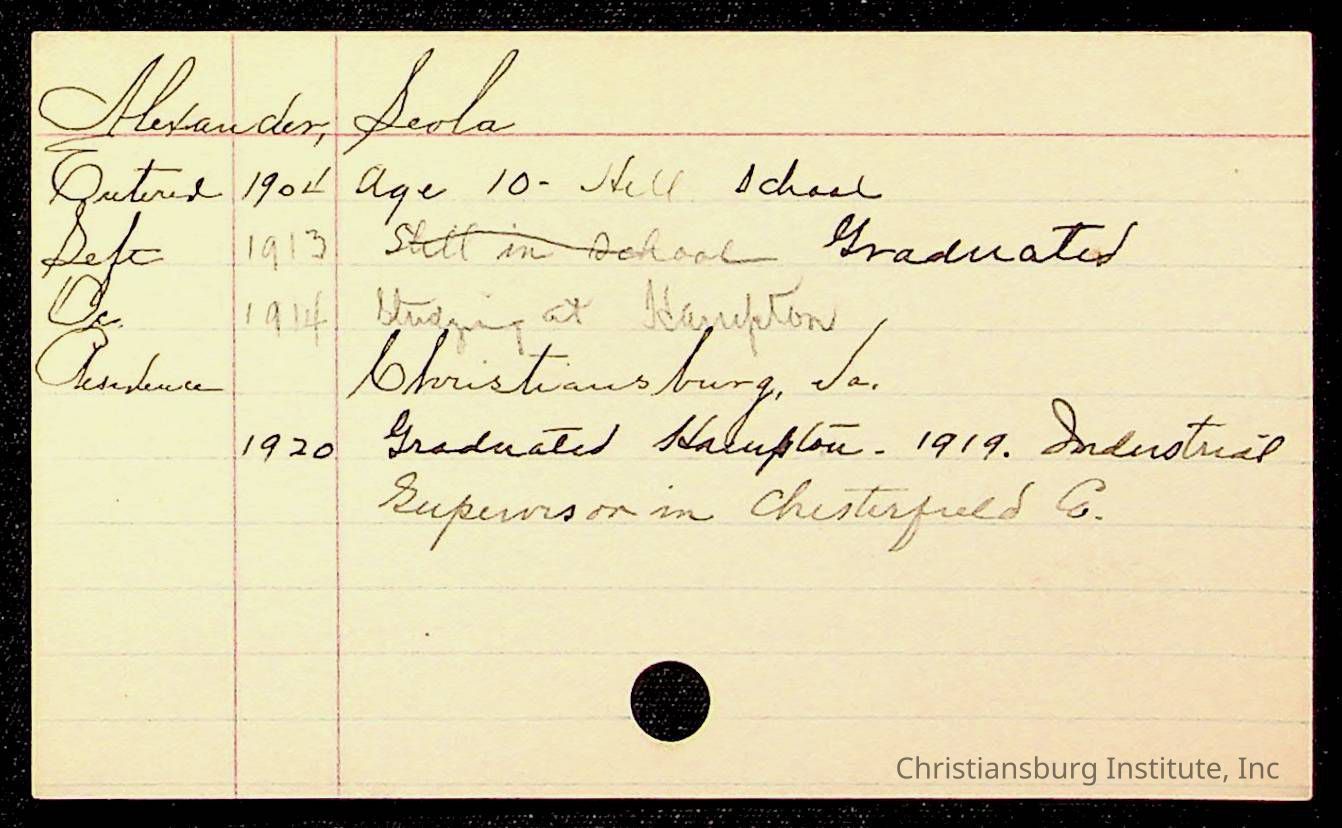 Alexander, Seola
Entered 1904 Age 10- Hill School
Left 1913 Still in School Graduated
Oc. 1914 Studying at Hampton
Residence Christiansburg, Va.
1920 Graduated Hampton - 1919. Industrial
Supervisor in Chesterfield Co.
Christiansburg Institute, Inc